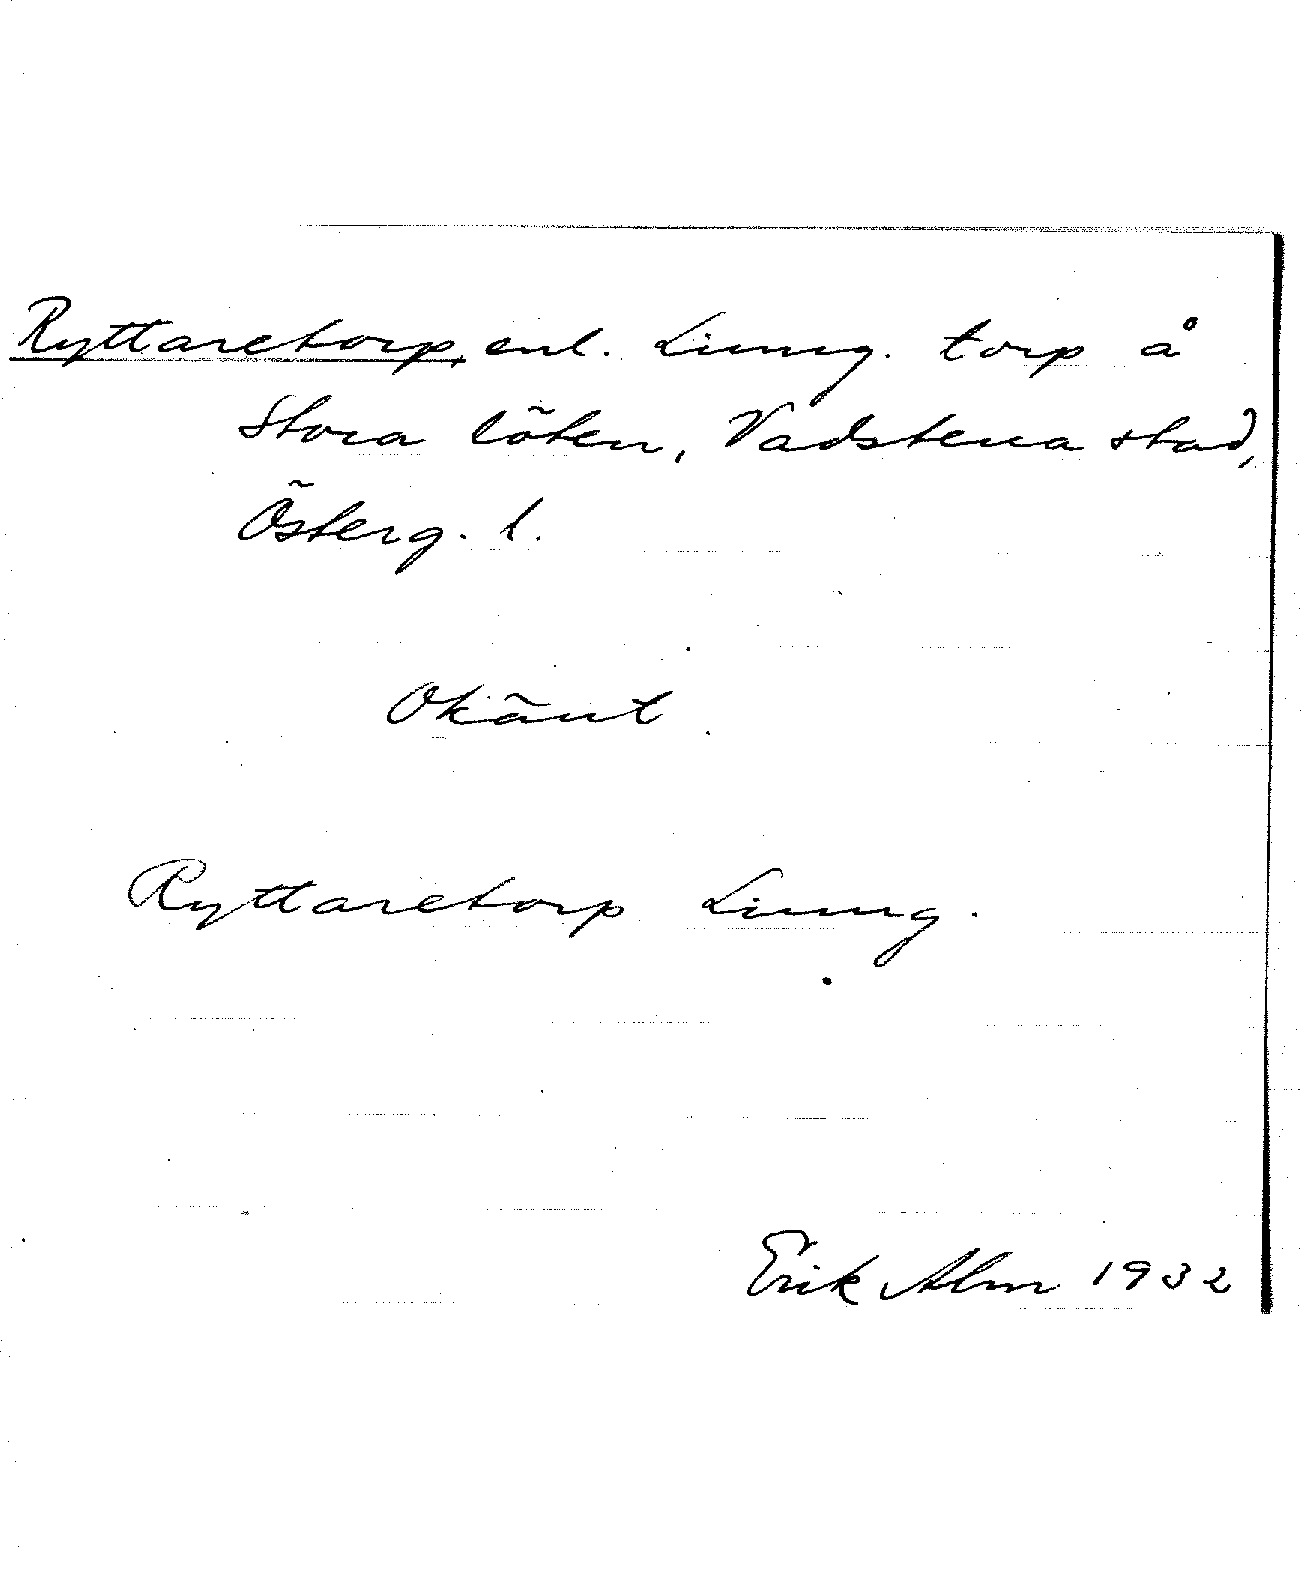 Ryttaretorp, enl. Liung. torp å
Stora löten, Vadstena stad,
Österg. l.
Okänt
Ryttaretorp Liung.
Erik Alm 1932